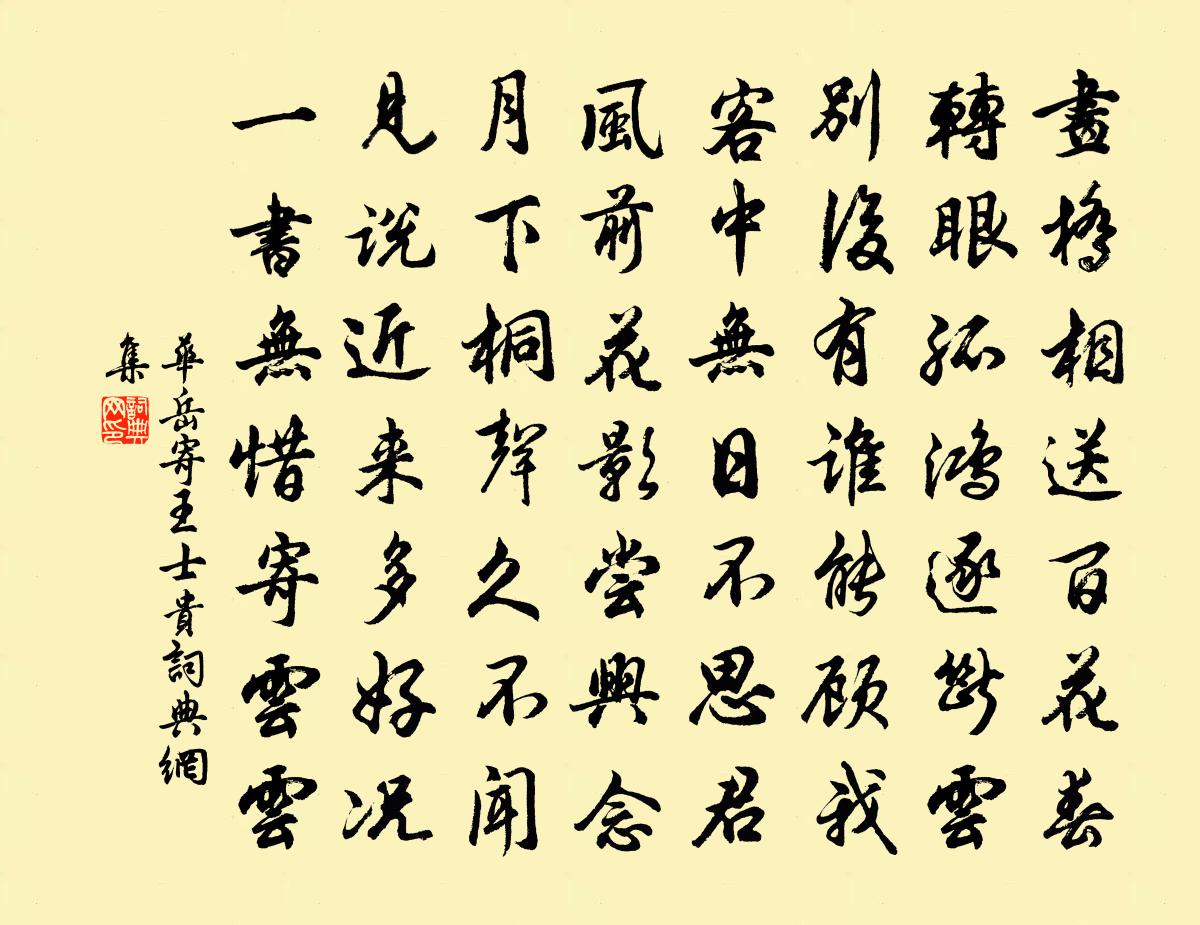 畫橋相送百花春
轉眼孤鴻逐斷雲
別後有誰能顧我
客中無日不思君
風前花影嘗興念
月下桐聲久不聞
見説近来多好况
一書無惜寄雲雲
華岳寄王士貴詞典網
集
詞典
网印